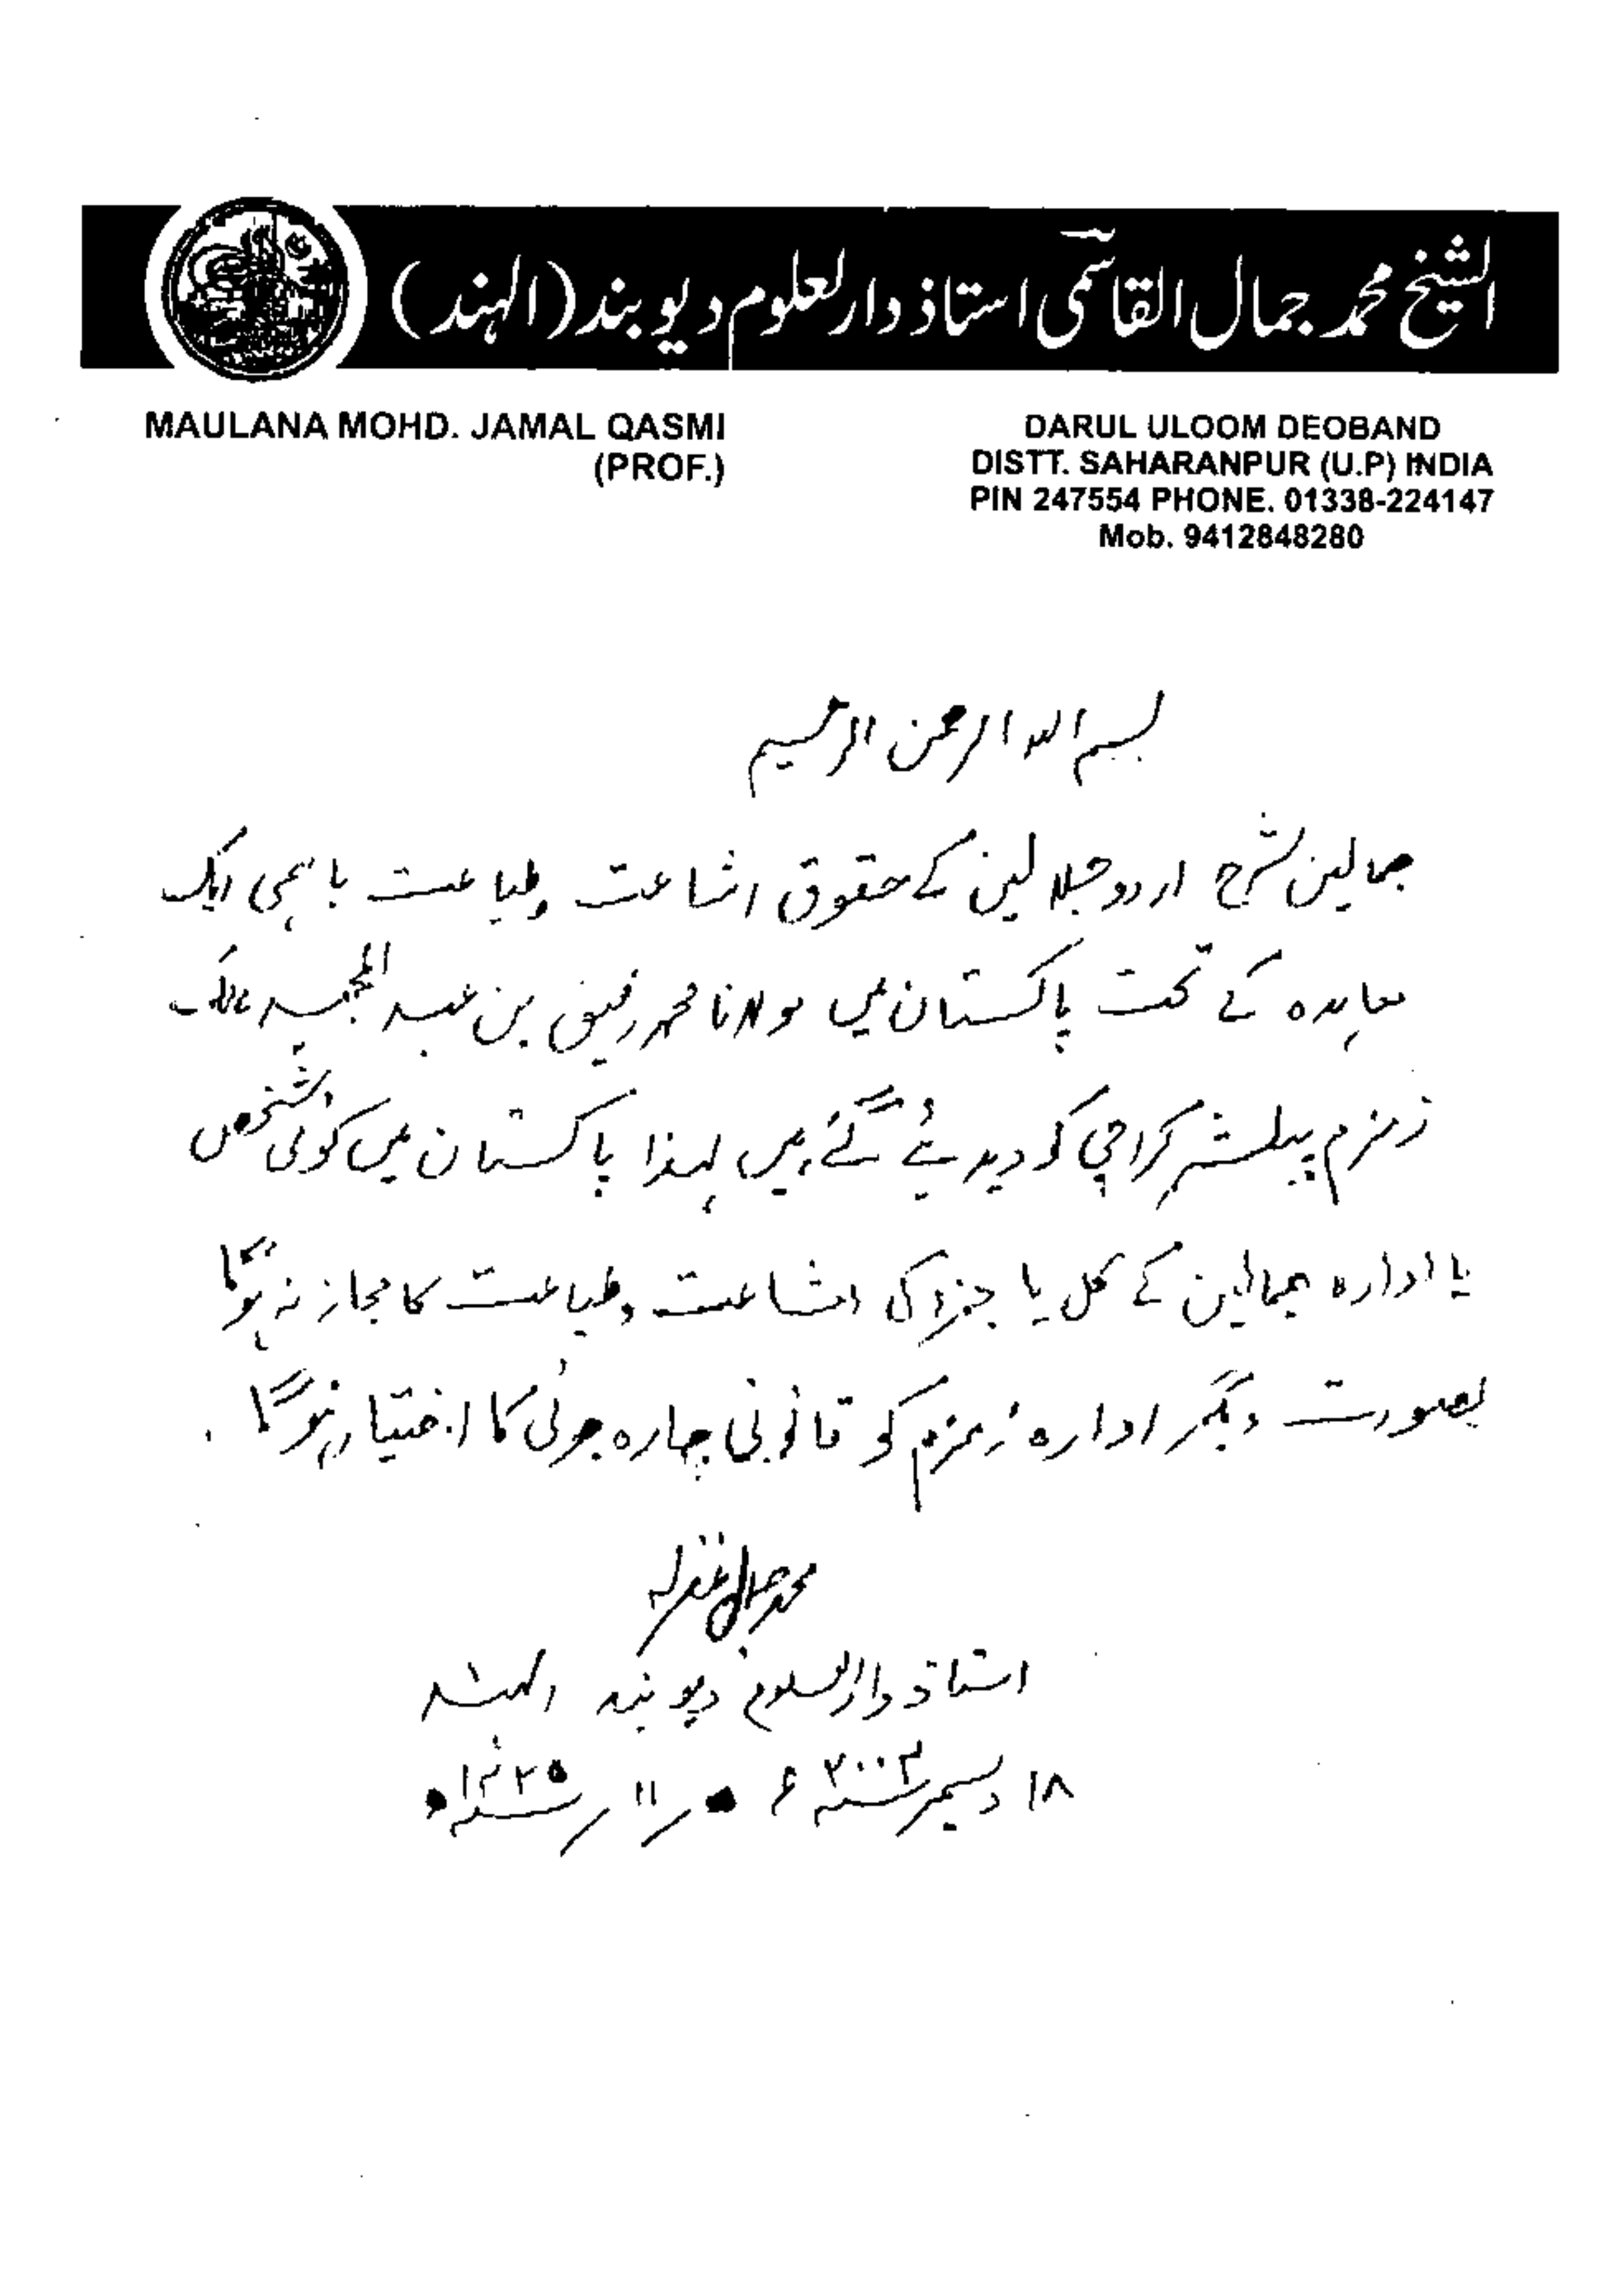 الشیخ محمد جمال القاسمی استاذ دارالعلوم دیوبند (الہند)
MAULANA MOHD. JAMAL QASMI
(PROF.)
DARUL ULOOM DEOBAND
DISTT. SAHARANPUR (U.P) INDIA
PIN 247554 PHONE. 01338-224147
Mob. 9412848280
بسم اللہ الرحمن الرحیم
جمالین شرح اردو جلالین کے حقوق اشاعت وطباعت باہمی ایک
معاہدہ کے تحت پاکستان میں مولانا محمد رفیق بن عبد المجید مالک
زمزم پبلشر کراچی کو دیدیئے گئے ہیں لہذا پاکستان میں کوئی شخص
یا ادارہ جمالین کے کل یا جزء کی اشاعت وطباعت کا مجاز نہ ہوگا
بصورت دیگر ادارہ زمزم کو قانونی چارہ جوئی کا اختیار ہوگا .
محمد جمال غفرلہ
استاذ دارالعلوم دیوبند الہند
۱۸ دسمبر ۲۰۰۳ء ۱۱